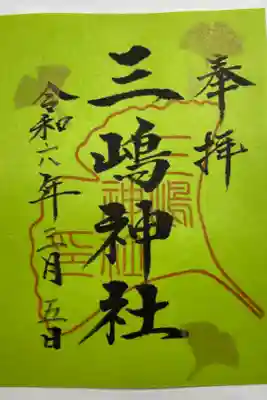 奉拝
三嶋神社
令和六年五月五日
三嶋神社